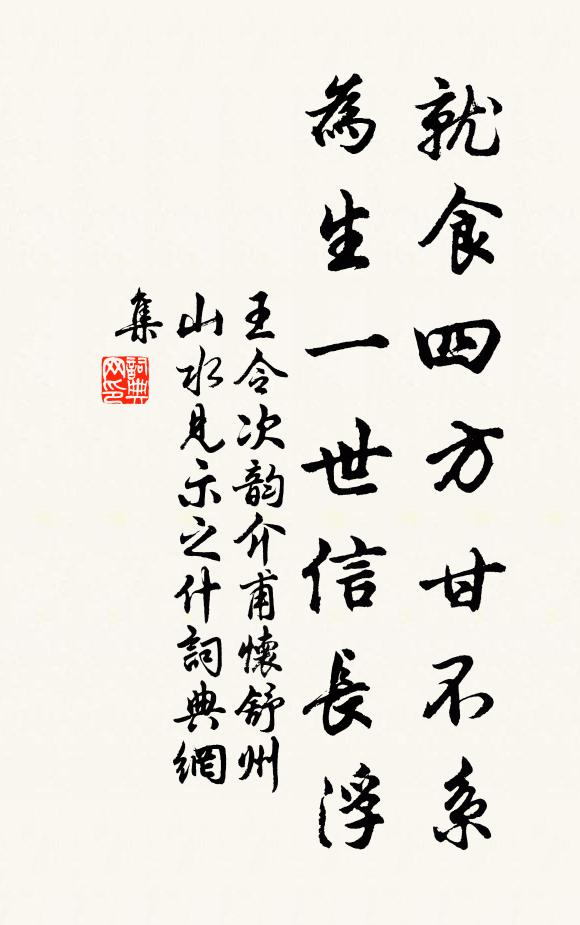 就食四方甘不系
為生一世信長浮
王令次韵介甫懷舒州
山水見示之什詞典網
集
詞典
网印